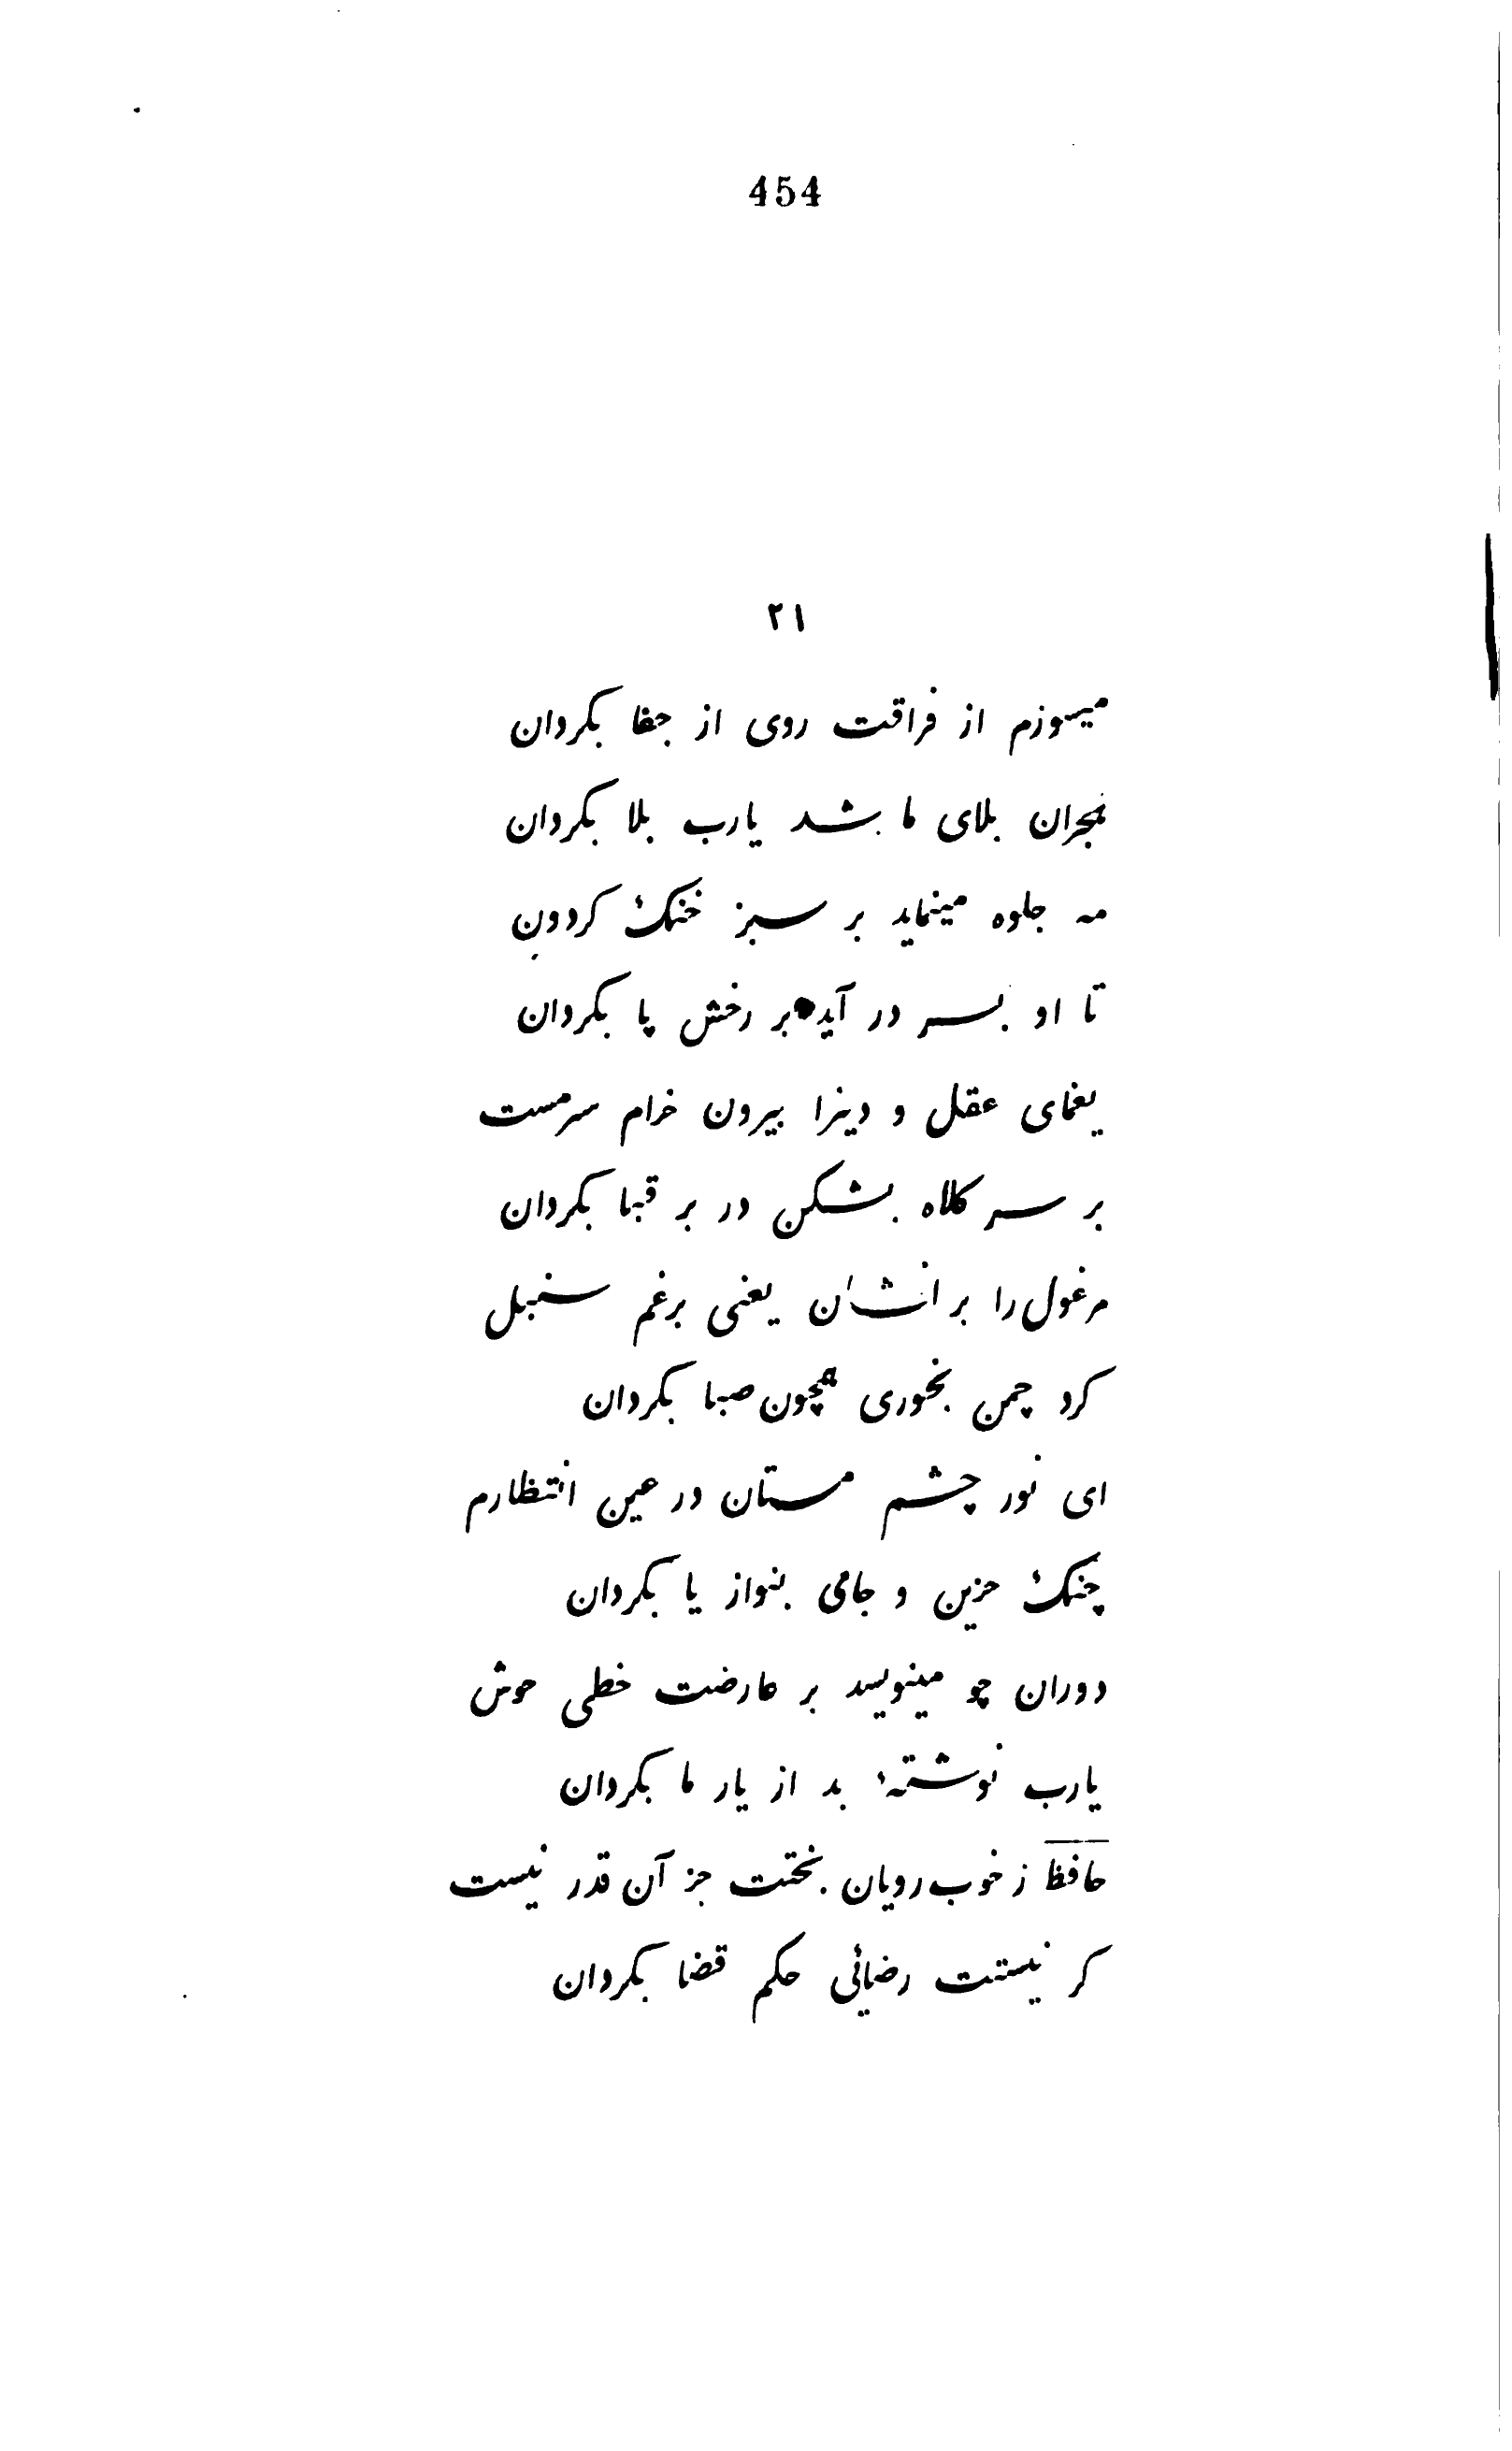 454
۲۱
میسوزم از فراقت روی از جفا بکردان
هجران بلای ما شد یارب بلا بکردان
مه جلوه مینماید بر سبز خنک کردون
تا او بسر در آید بر رخش پا بکردان
یغمای عقل و دینرا بیرون خرام سرمست
بر سر کلاه بشکن در بر قبا بکردان
مرغول را بر افشان یعنی برغم سنبل
کرد چمن بخوری همچون صبا بکردان
ای نور چشم مستان در عین انتظارم
چنک حزین و جامی بنواز یا بکردان
دوران چو مینویسد بر عارضت خطی خوش
یارب نوشتهٔ بد از یار ما بکردان
حافظ ز خوب‌رویان بختت جز آن قدر نیست
کر نیستت رضائی حکم قضا بکردان